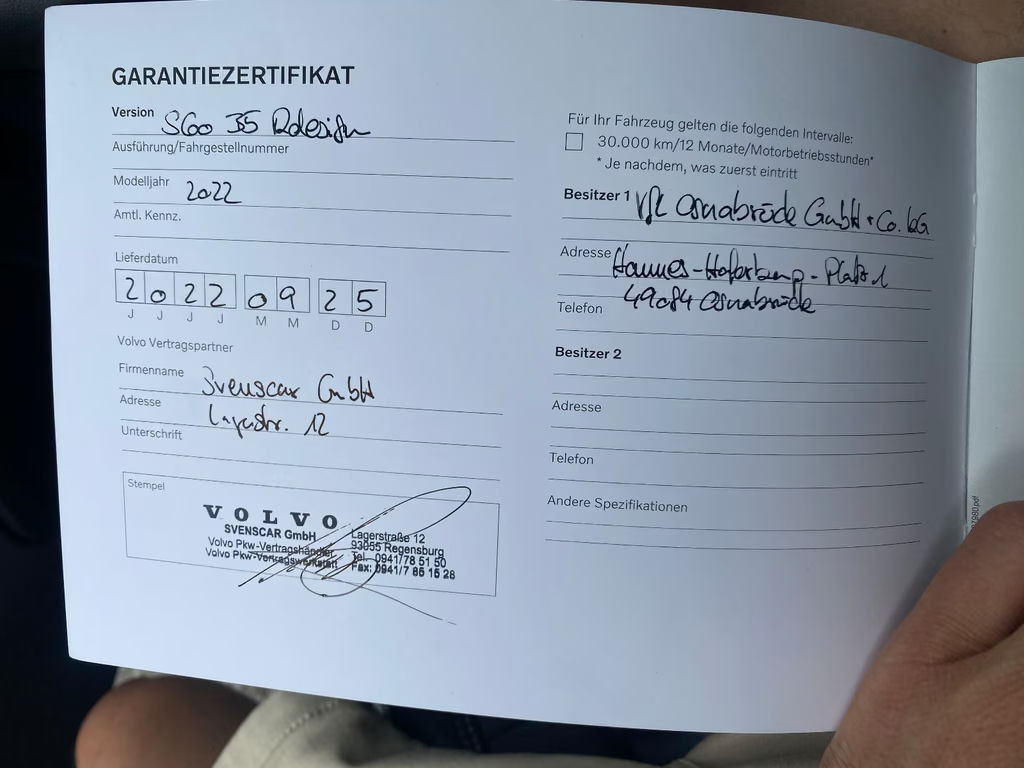 GARANTIEZERTIFIKAT
Version S60 B5 Rdesign
Ausführung/Fahrgestellnummer
Modelljahr 2022
Amtl. Kennz.
Lieferdatum
2022 09 25
J J J J M M D D
Volvo Vertragspartner
Firmenname Svenscar GmbH
Adresse Lagerstr. 12
Unterschrift
Stempel
VOLVO
SVENSCAR GmbH
Volvo Pkw-Vertragshändler
Volvo Pkw-Vertragswerkstatt
Lagerstraße 12
93055 Regensburg
Tel. 0941/78 51 50
Fax: 0941/7 85 15 28
Für Ihr Fahrzeug gelten die folgenden Intervalle:
30.000 km/12 Monate/Motorbetriebsstunden*
* Je nachdem, was zuerst eintritt
Besitzer 1 VfL Osnabrück GmbH + Co. KG
Adresse Hannes-Haferkamp-Platz 1
49084 Osnabrück
Telefon
Besitzer 2
Adresse
Telefon
Andere Spezifikationen